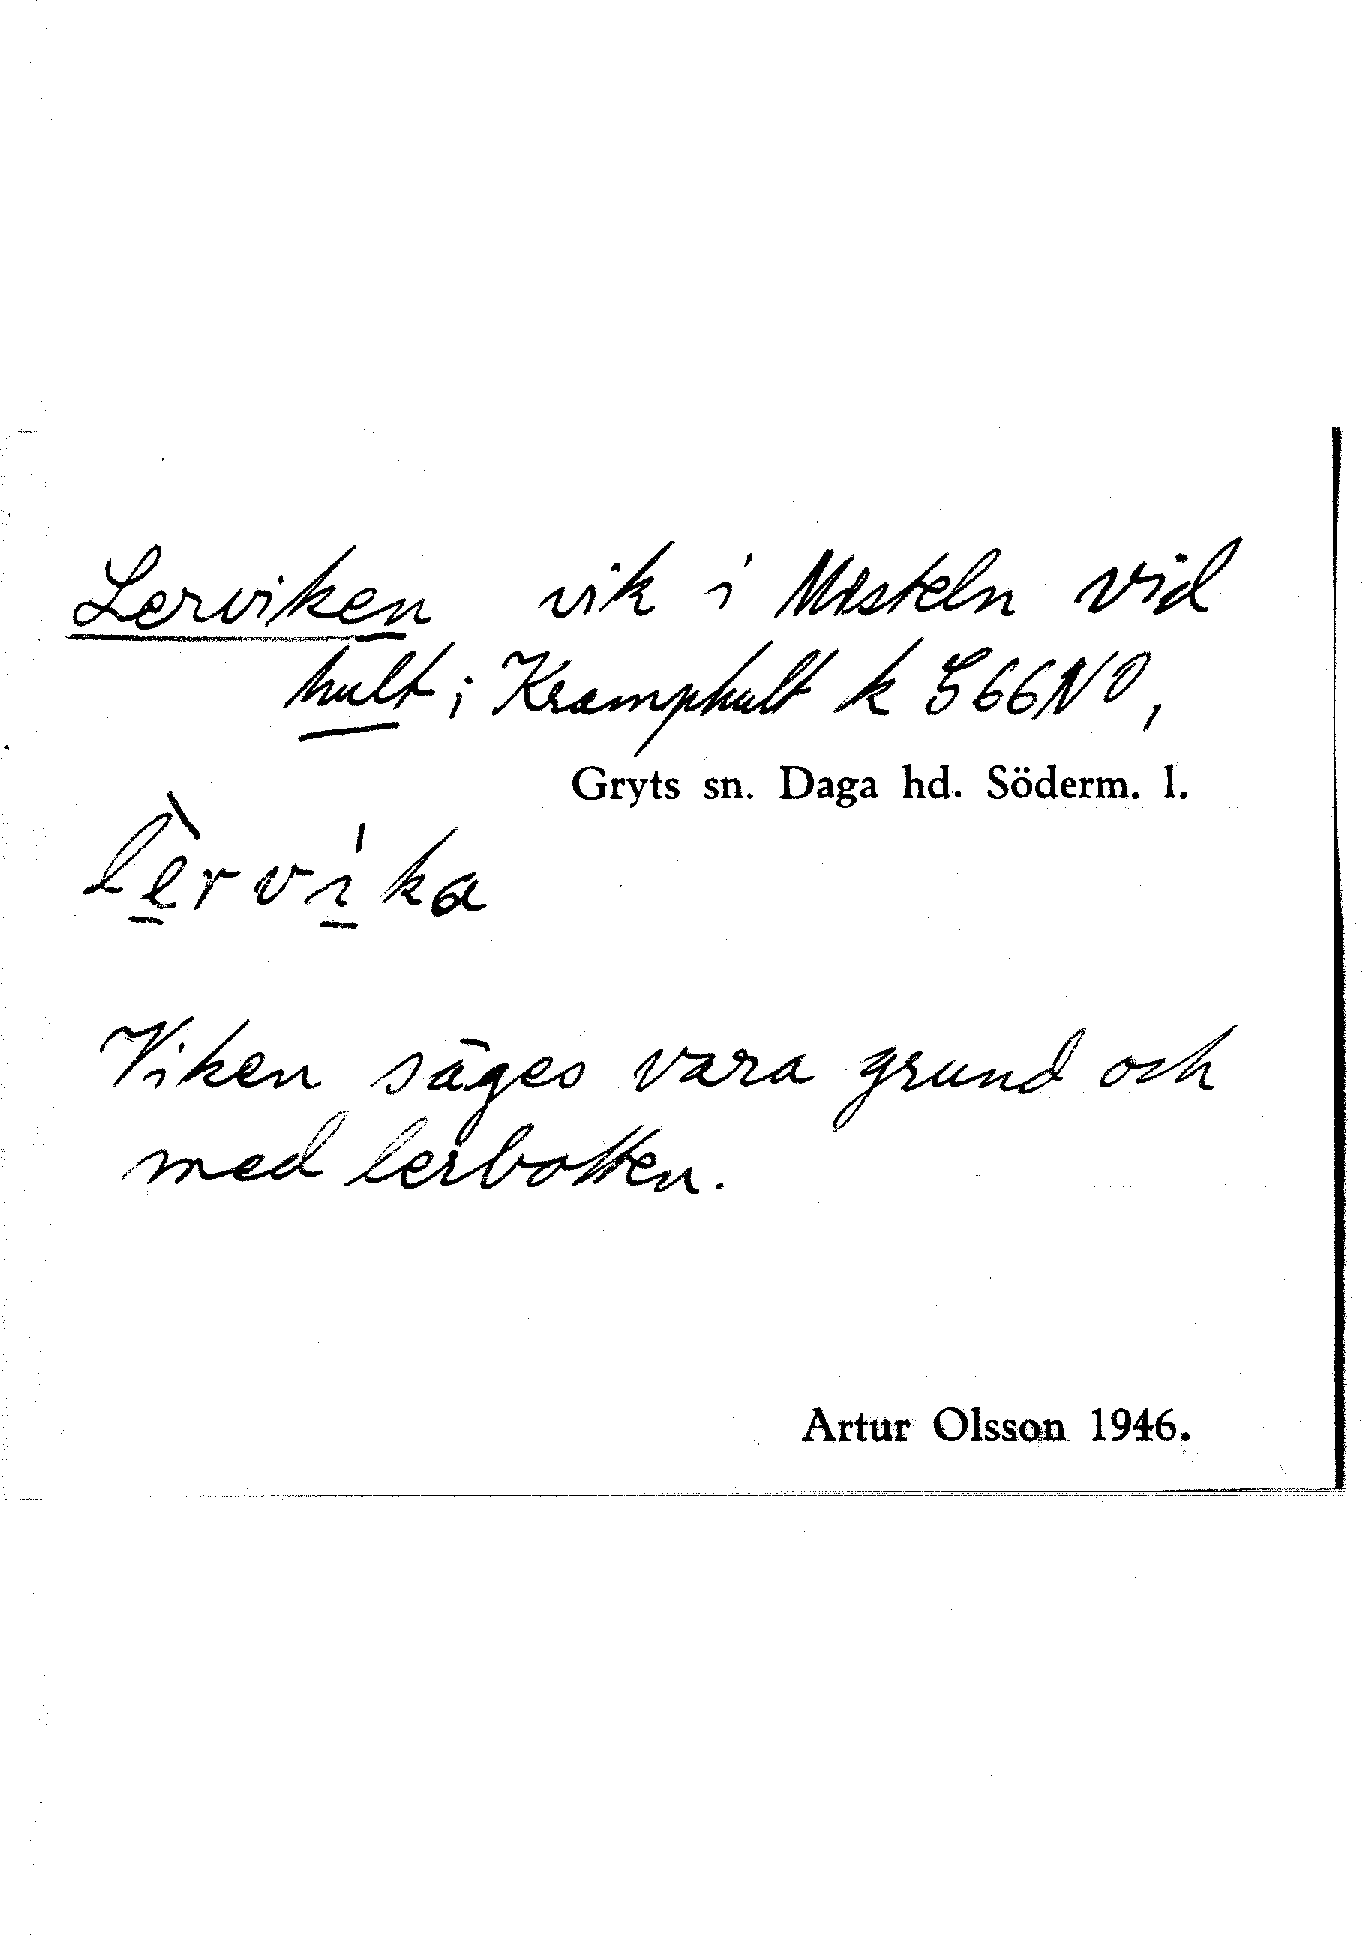 Lerviken vik i Misteln vid
hult; Kramphult k 566NO,
Gryts sn. Daga hd. Söderm. l.
lèrvíka
Viken säges vara grund och
med lerbotten.
Artur Olsson 1946.